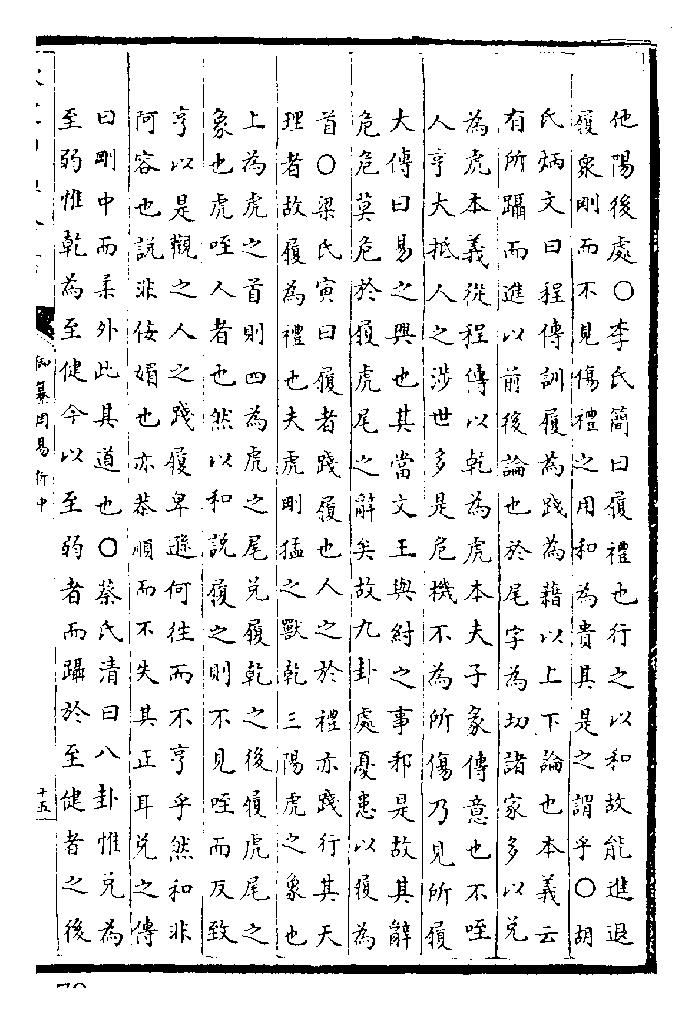 他陽後處〇李氏簡曰履禮也行之以和故能進退
履衆剛而不見傷禮之用和為貴其是之謂乎〇胡
氏炳文曰程傳訓履為踐為藉以上下論也本義云
有所躡而進以前後論也於尾字為切諸家多以兑
為虎本義從程傳以乾為虎本夫子彖傳意也不咥
人亨大抵人之渉世多是危機不為所傷乃見所履
大傳曰易之興也其當文王與紂之事邪是故其辭
危危莫危於履虎尾之辭矣故九卦處憂患以履為
首〇梁氏寅曰履者踐履也人之於禮亦踐行其天
理者故履為禮也夫虎剛猛之獸乾三陽虎之象也
上為虎之首則四為虎之尾兑履乾之後履虎尾之
象也虎咥人者也然以和説履之則不見咥而反致
亨以是觀之人之踐履卑遜何往而不亨乎然和非
阿容也説非佞媚也亦恭順而不失其正耳兑之傳
曰剛中而柔外此其道也〇蔡氏清曰八卦惟兑為
至弱惟乾為至健今以至弱者而躡於至健者之後
御纂周易折中
十五